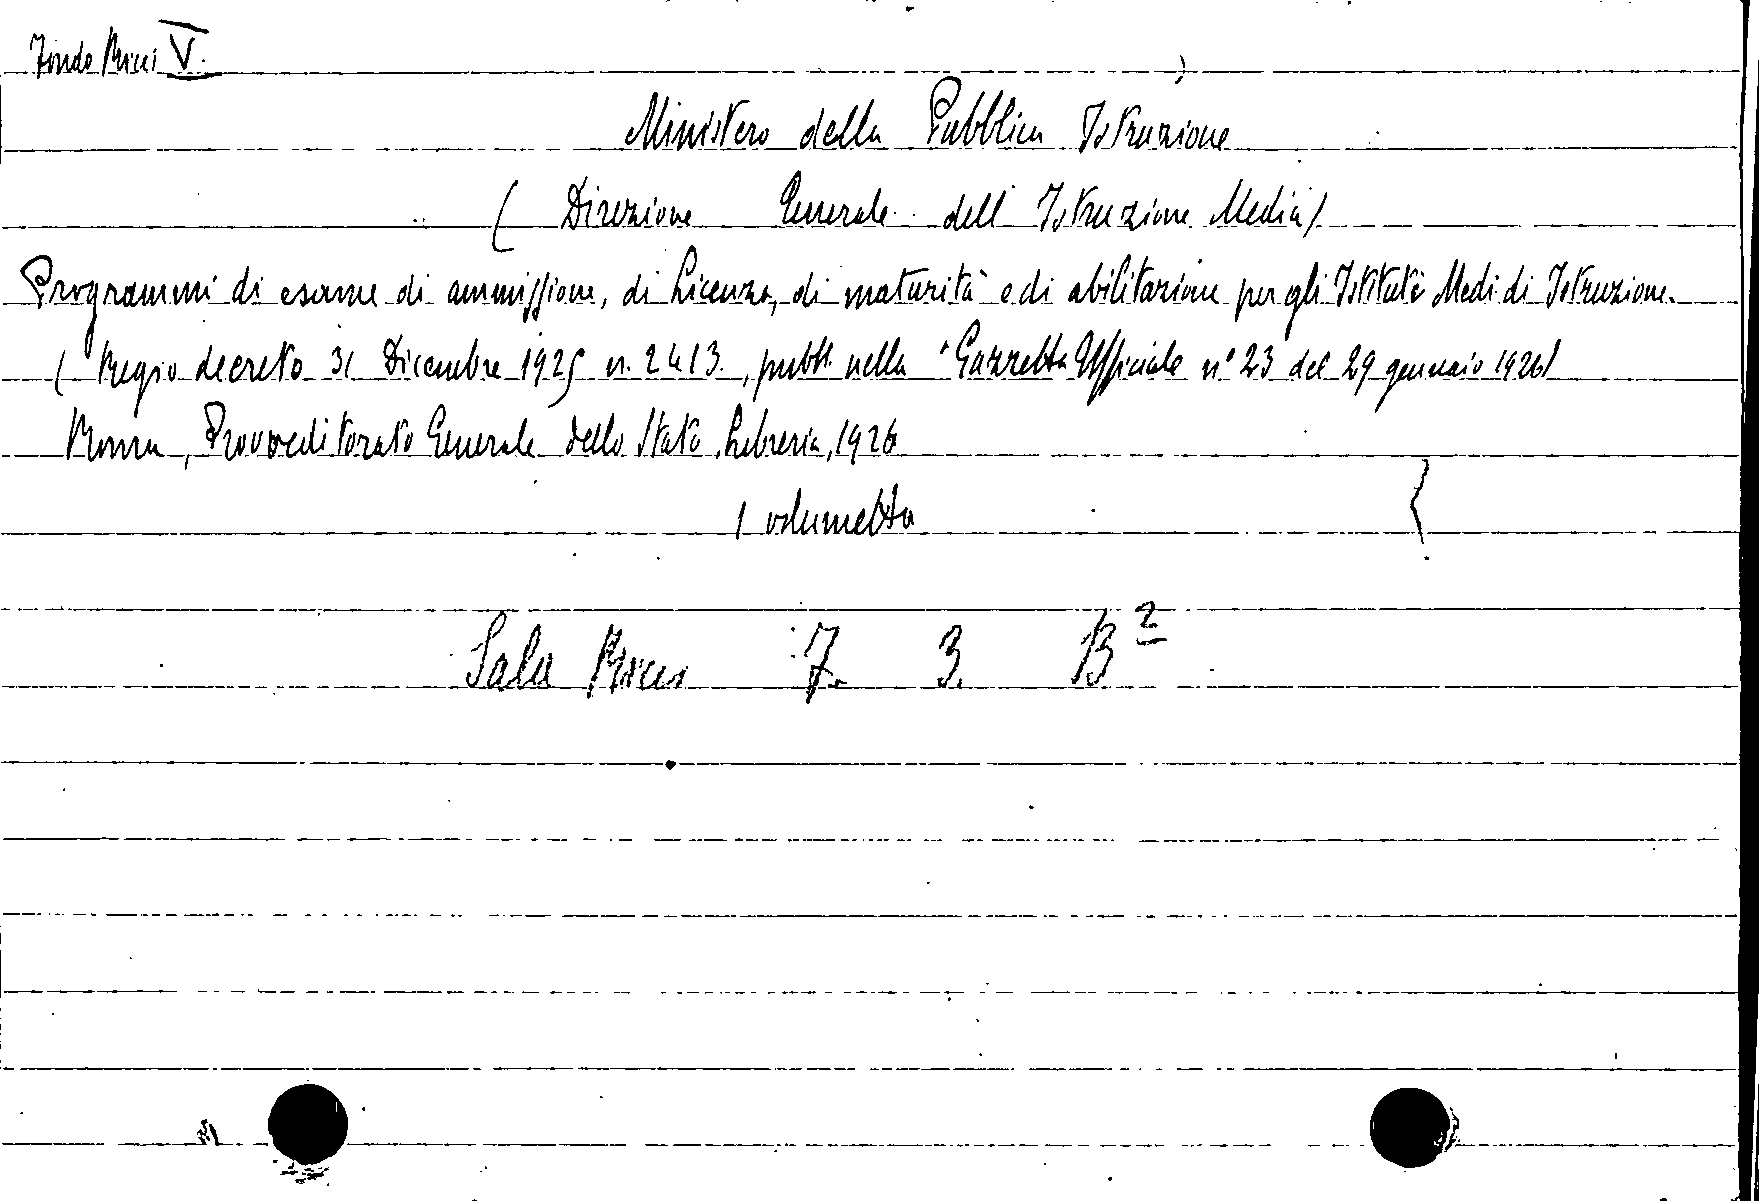 Fondo Ricci V.
Ministero della Pubblica Istruzione
( Direzione Generale dell' Istruzione Media)
Programmi di esame di ammissione, di Licenza, di maturità e di abilitazione per gli Istituti Medi di Istruzione.
( Regio decreto 31 Dicembre 1925 n. 2413., pubbl. nella "Gazzetta Ufficiale n° 23 del 29 gennaio 1926)
Roma, Provveditorato Generale dello Stato, Libreria, 1926
1 volumetto
Sala Ricci 7. 3. B²